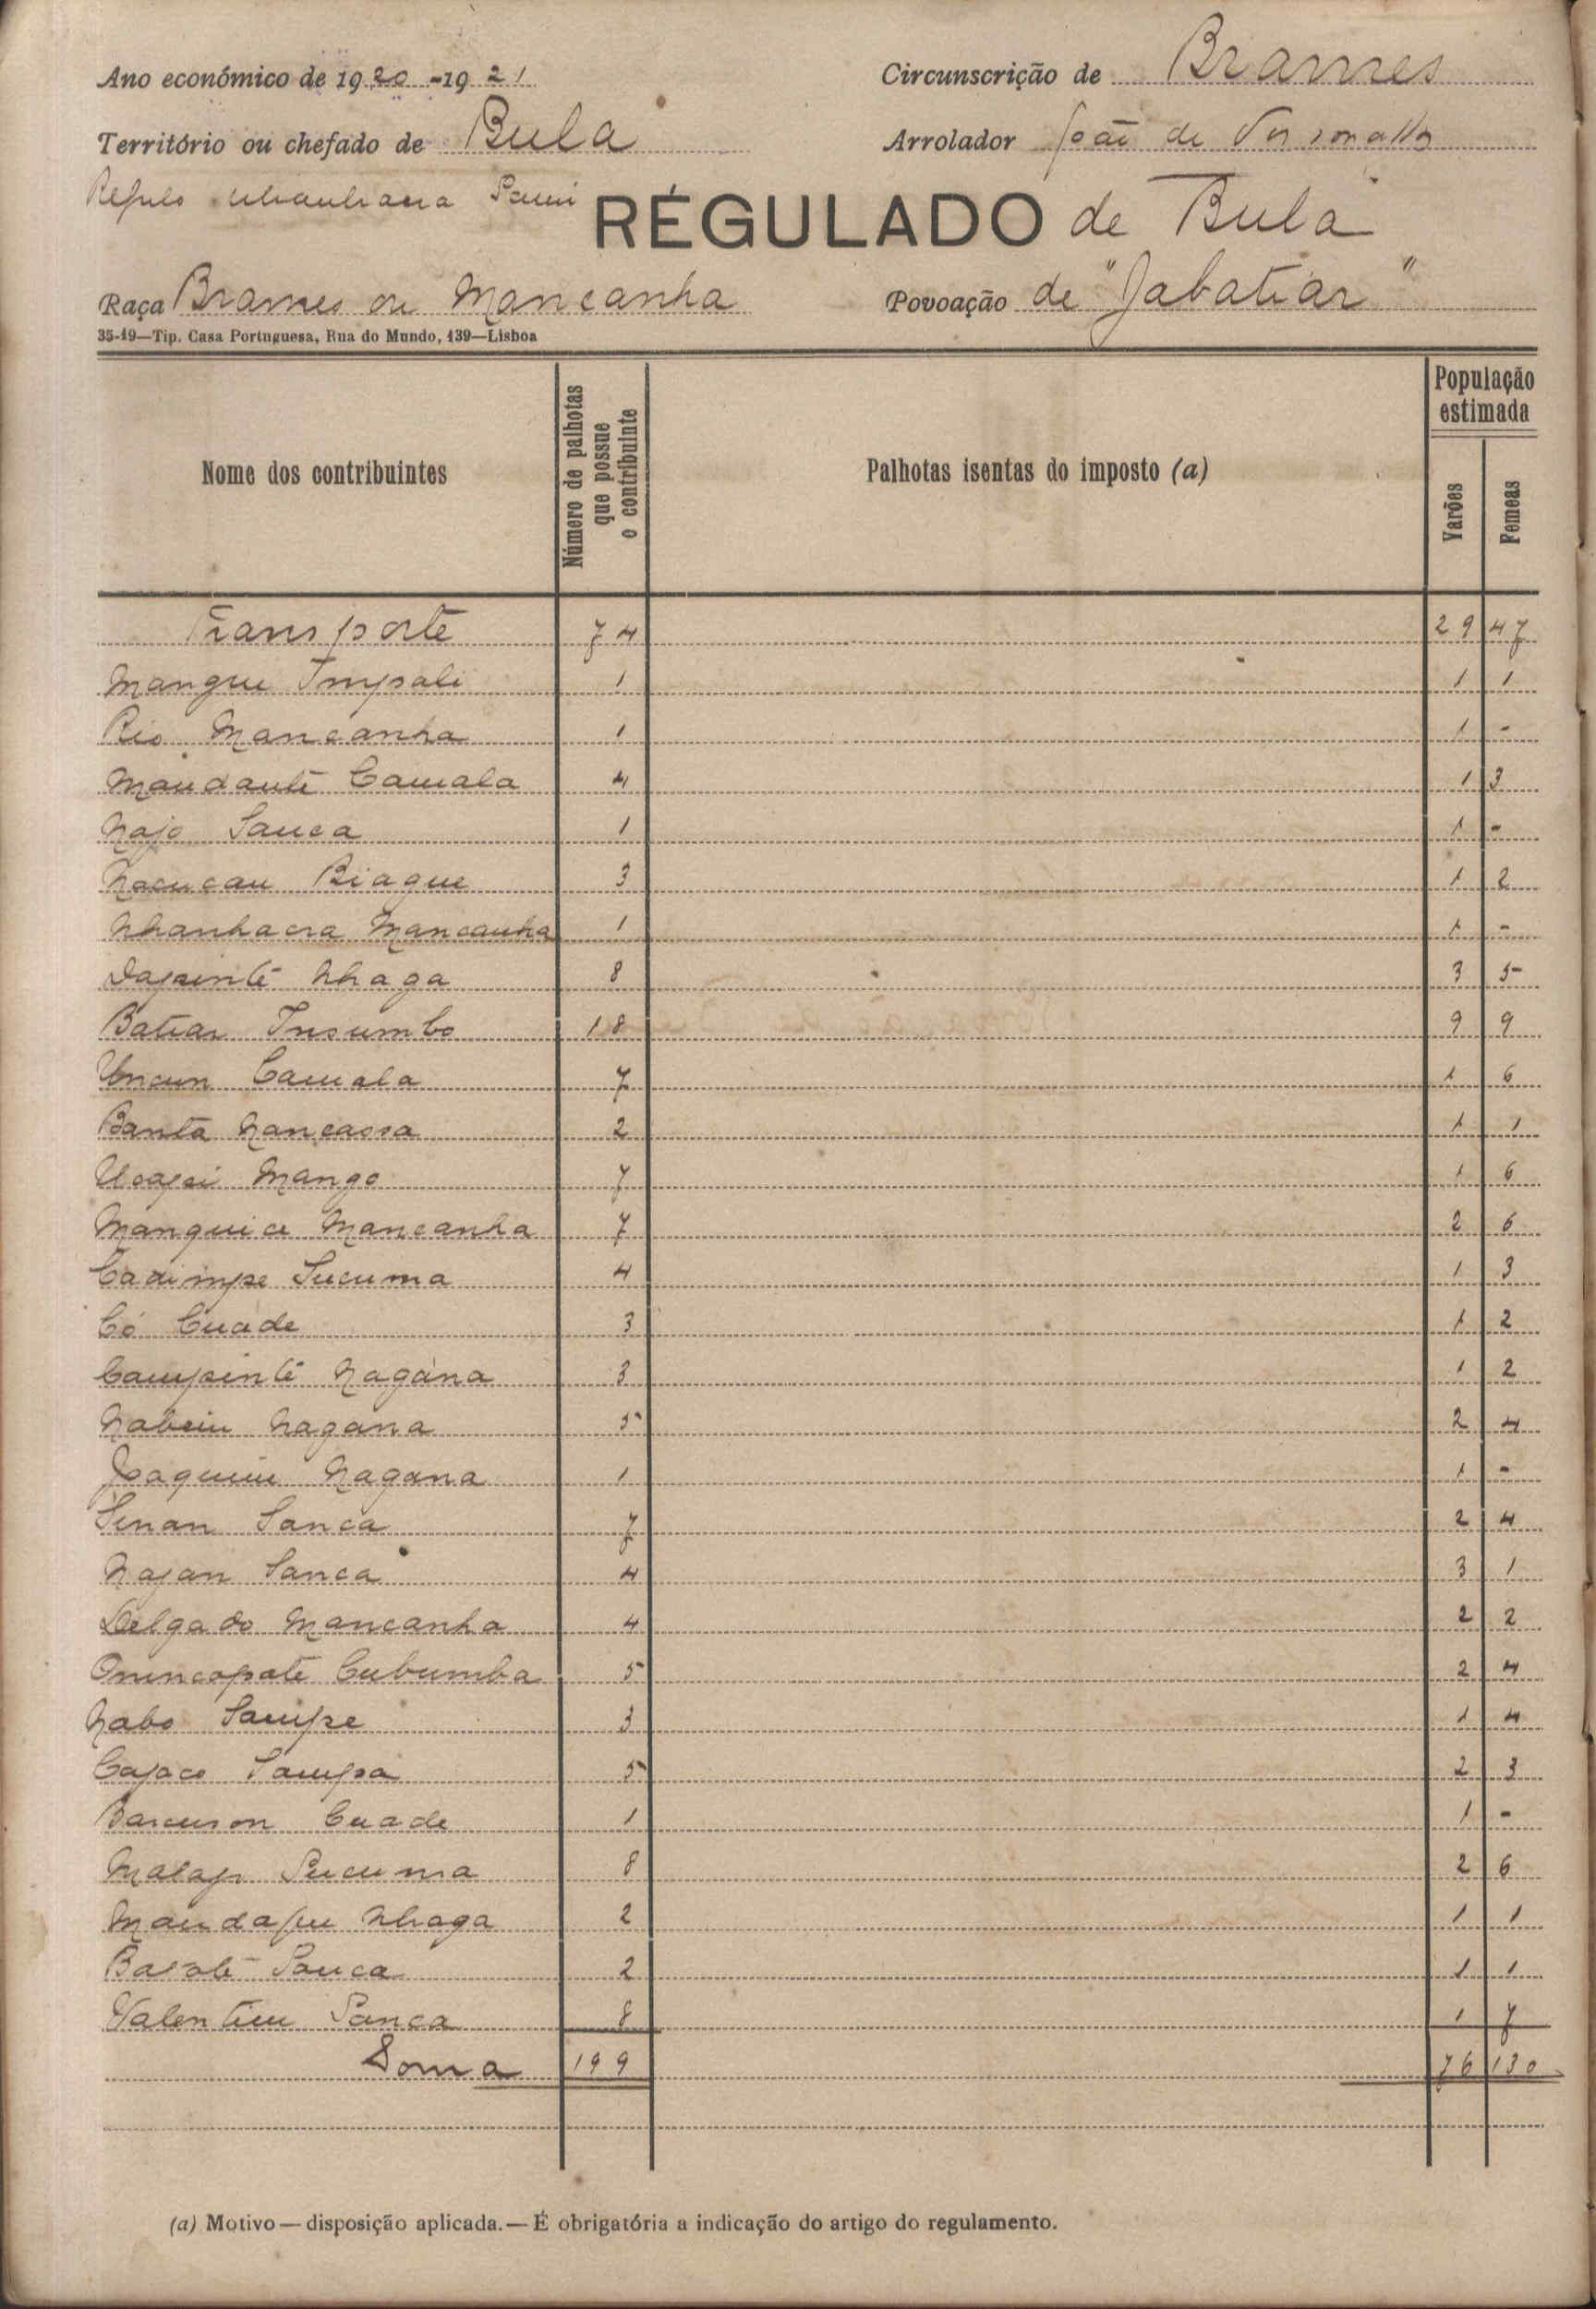 Ano económico de 1920-1921
Circunscrição de Brames
Território ou chefado de Bula
Arrolador João de
Regulo
RÉGULADO de Bula
Raça Brames ou Mancanha
Povoação de "Jabatiar"
35-19—Tip. Casa Portuguesa, Rua do Mundo, 139—Lisboa
Nome dos contribuintes
Número de palhotas que possue o contribuinte
Palhotas isentas do imposto (a)
População estimada
Varões
Femeas
Transporte 74 29 47
Mangue Impali 1 1 1
Rio Mancanha 1 1 -
Mandauté Camala 4 1 3
Najo Sanca 1 1 -
Nacucau Biague 3 1 2
Nhanhacra Mancanha 1 1 -
Dapinté Nhaga 8 3 5
Batiar Insumbo 18 9 9
Uncun Camala 7 1 6
Banta Nancassa 2 1 1
Ucapi Mango 7 1 6
Manquice Mancanha 7 2 6
Cadimpe Sucuma 4 1 3
Có Cuade 3 1 2
Campinté Nagana 3 1 2
Nabciu Nagana 5 2 4
Joaquim Nagana 1 1 -
Sinan Sanca 7 2 4
Najan Sanca 4 3 1
Delgado Mancanha 4 2 2
Onincapaté Cubumba 5 2 4
Nabo Sampe 3 1 4
Cajaco Sampa 5 2 3
Barcuson Cuade 1 1 -
Malap Sucuma 8 2 6
Mandapu Nhaga 2 1 1
Basoté Sanca 2 1 1
Valentim Sanca 8 1 7
Soma 199 76 130
(a) Motivo—disposição aplicada.—É obrigatória a indicação do artigo do regulamento.